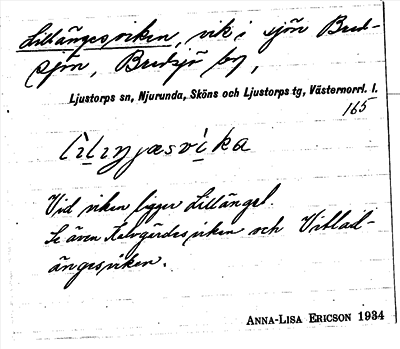 Lillängesviken, vik i sjön Bred-
sjön, Bredsjö by,
Ljustorps sn, Njurunda, Sköns och Ljustorps tg, Västernorrl. l.
165
lìlıŋjæsvìka
Vid viken ligger Lillänget.
Se även Kalvgärdesviken och Vitblad-
ängesviken.
ANNA-LISA ERICSON 1934